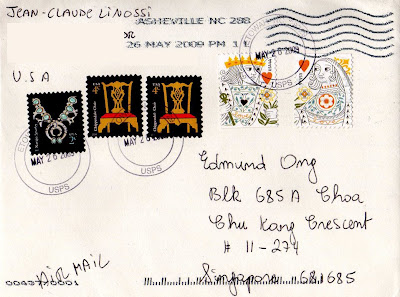 JEAN-CLAUDE LINOSSI
ASHEVILLE NC 288
26 MAY 2009 PM 1 L
U.S.A
MAY 26 2009
USPS
MAY 26 2009
USPS
MAY 26 2009
USPS
Edmund Ong
Blk 685A Choa
Chu Kang Crescent
# 11-274
Singapore 681685
AIR MAIL